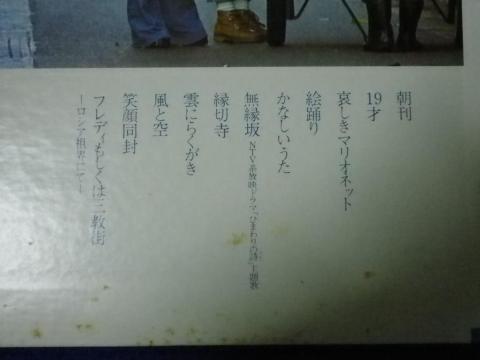 朝刊
19才
哀しきマリオネット
絵踊り
かなしいうた
無縁坂 NTV系放映ドラマ「ひまわりの詩」主題歌
縁切寺
雲にらくがき
風と空
笑顔同封
フレディもしくは三教街
―ロシア租界にて―